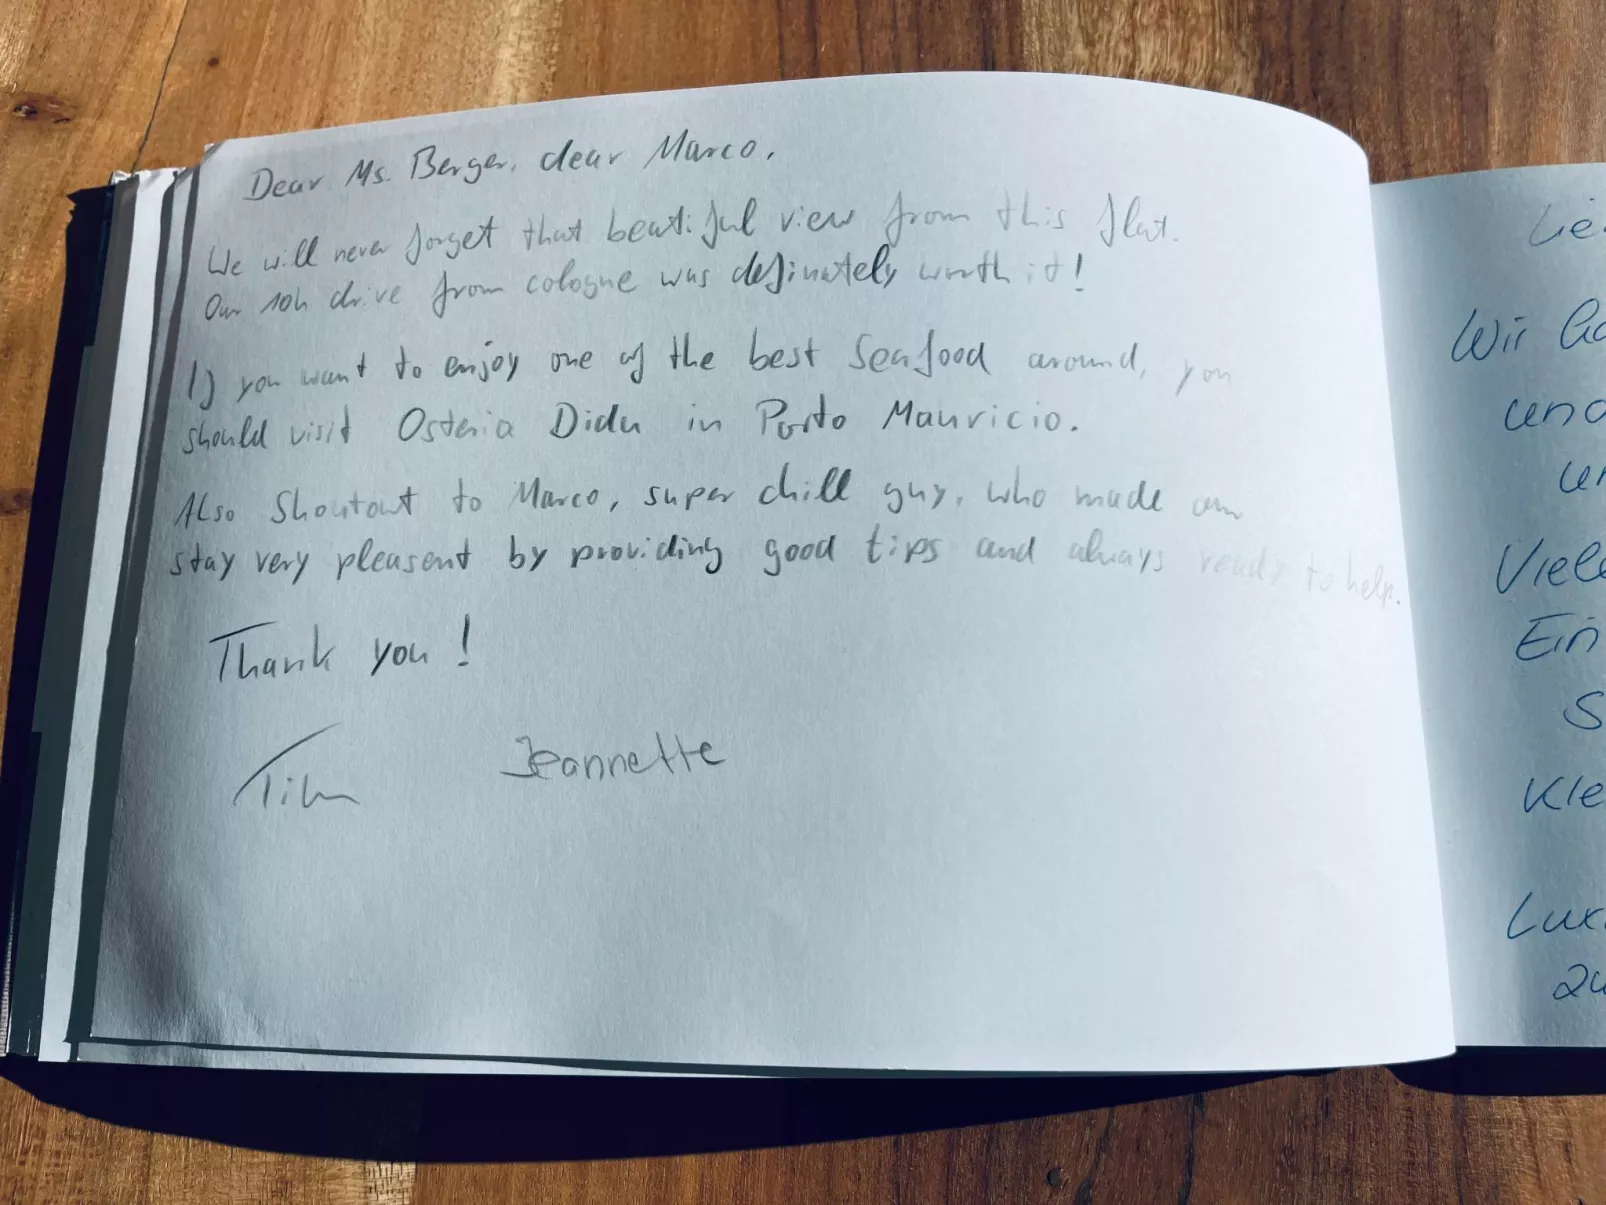 Dear Ms. Berger, dear Marco,
We will never forget that beatiful view from this flat.
Our 10h drive from cologne was definately worth it!
If you want to enjoy one of the best Seafood around, you
should visit Osteria Didu in Porto Mauricio.
Also Shoutout to Marco, super chill guy, who made our
stay very pleasent by providing good tips and always ready to help.
Thank you!
Tim Jeannette
Lie
Wir
und
un
Viele
Ein
S
Kle
Lux
zu